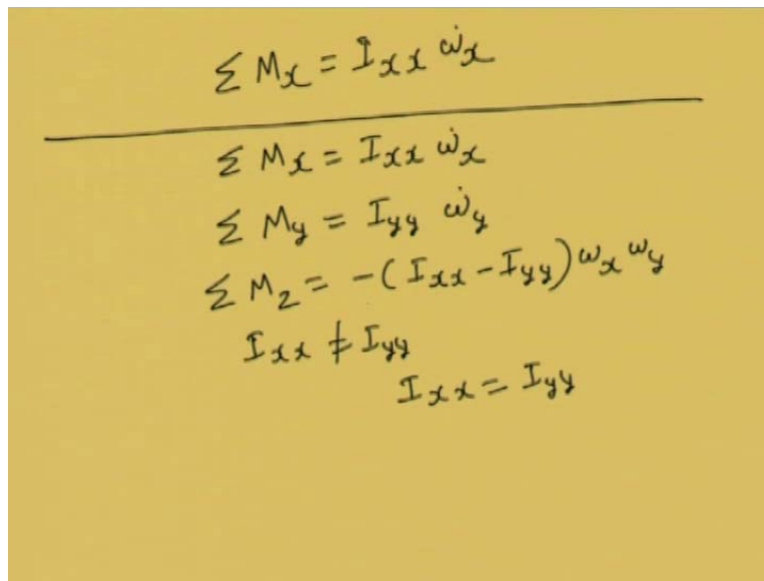 Σ Mx = Ixx ω̇x
Σ Mx = Ixx ω̇x
Σ My = Iyy ω̇y
Σ Mz = -(Ixx - Iyy) ωx ωy
Ixx ≠ Iyy
Ixx = Iyy